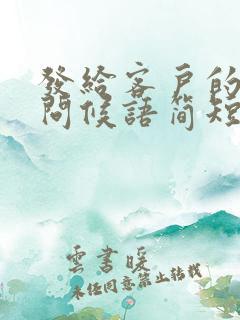 發給客戶的
問候語简短
雲書暖
未经同意禁止转载